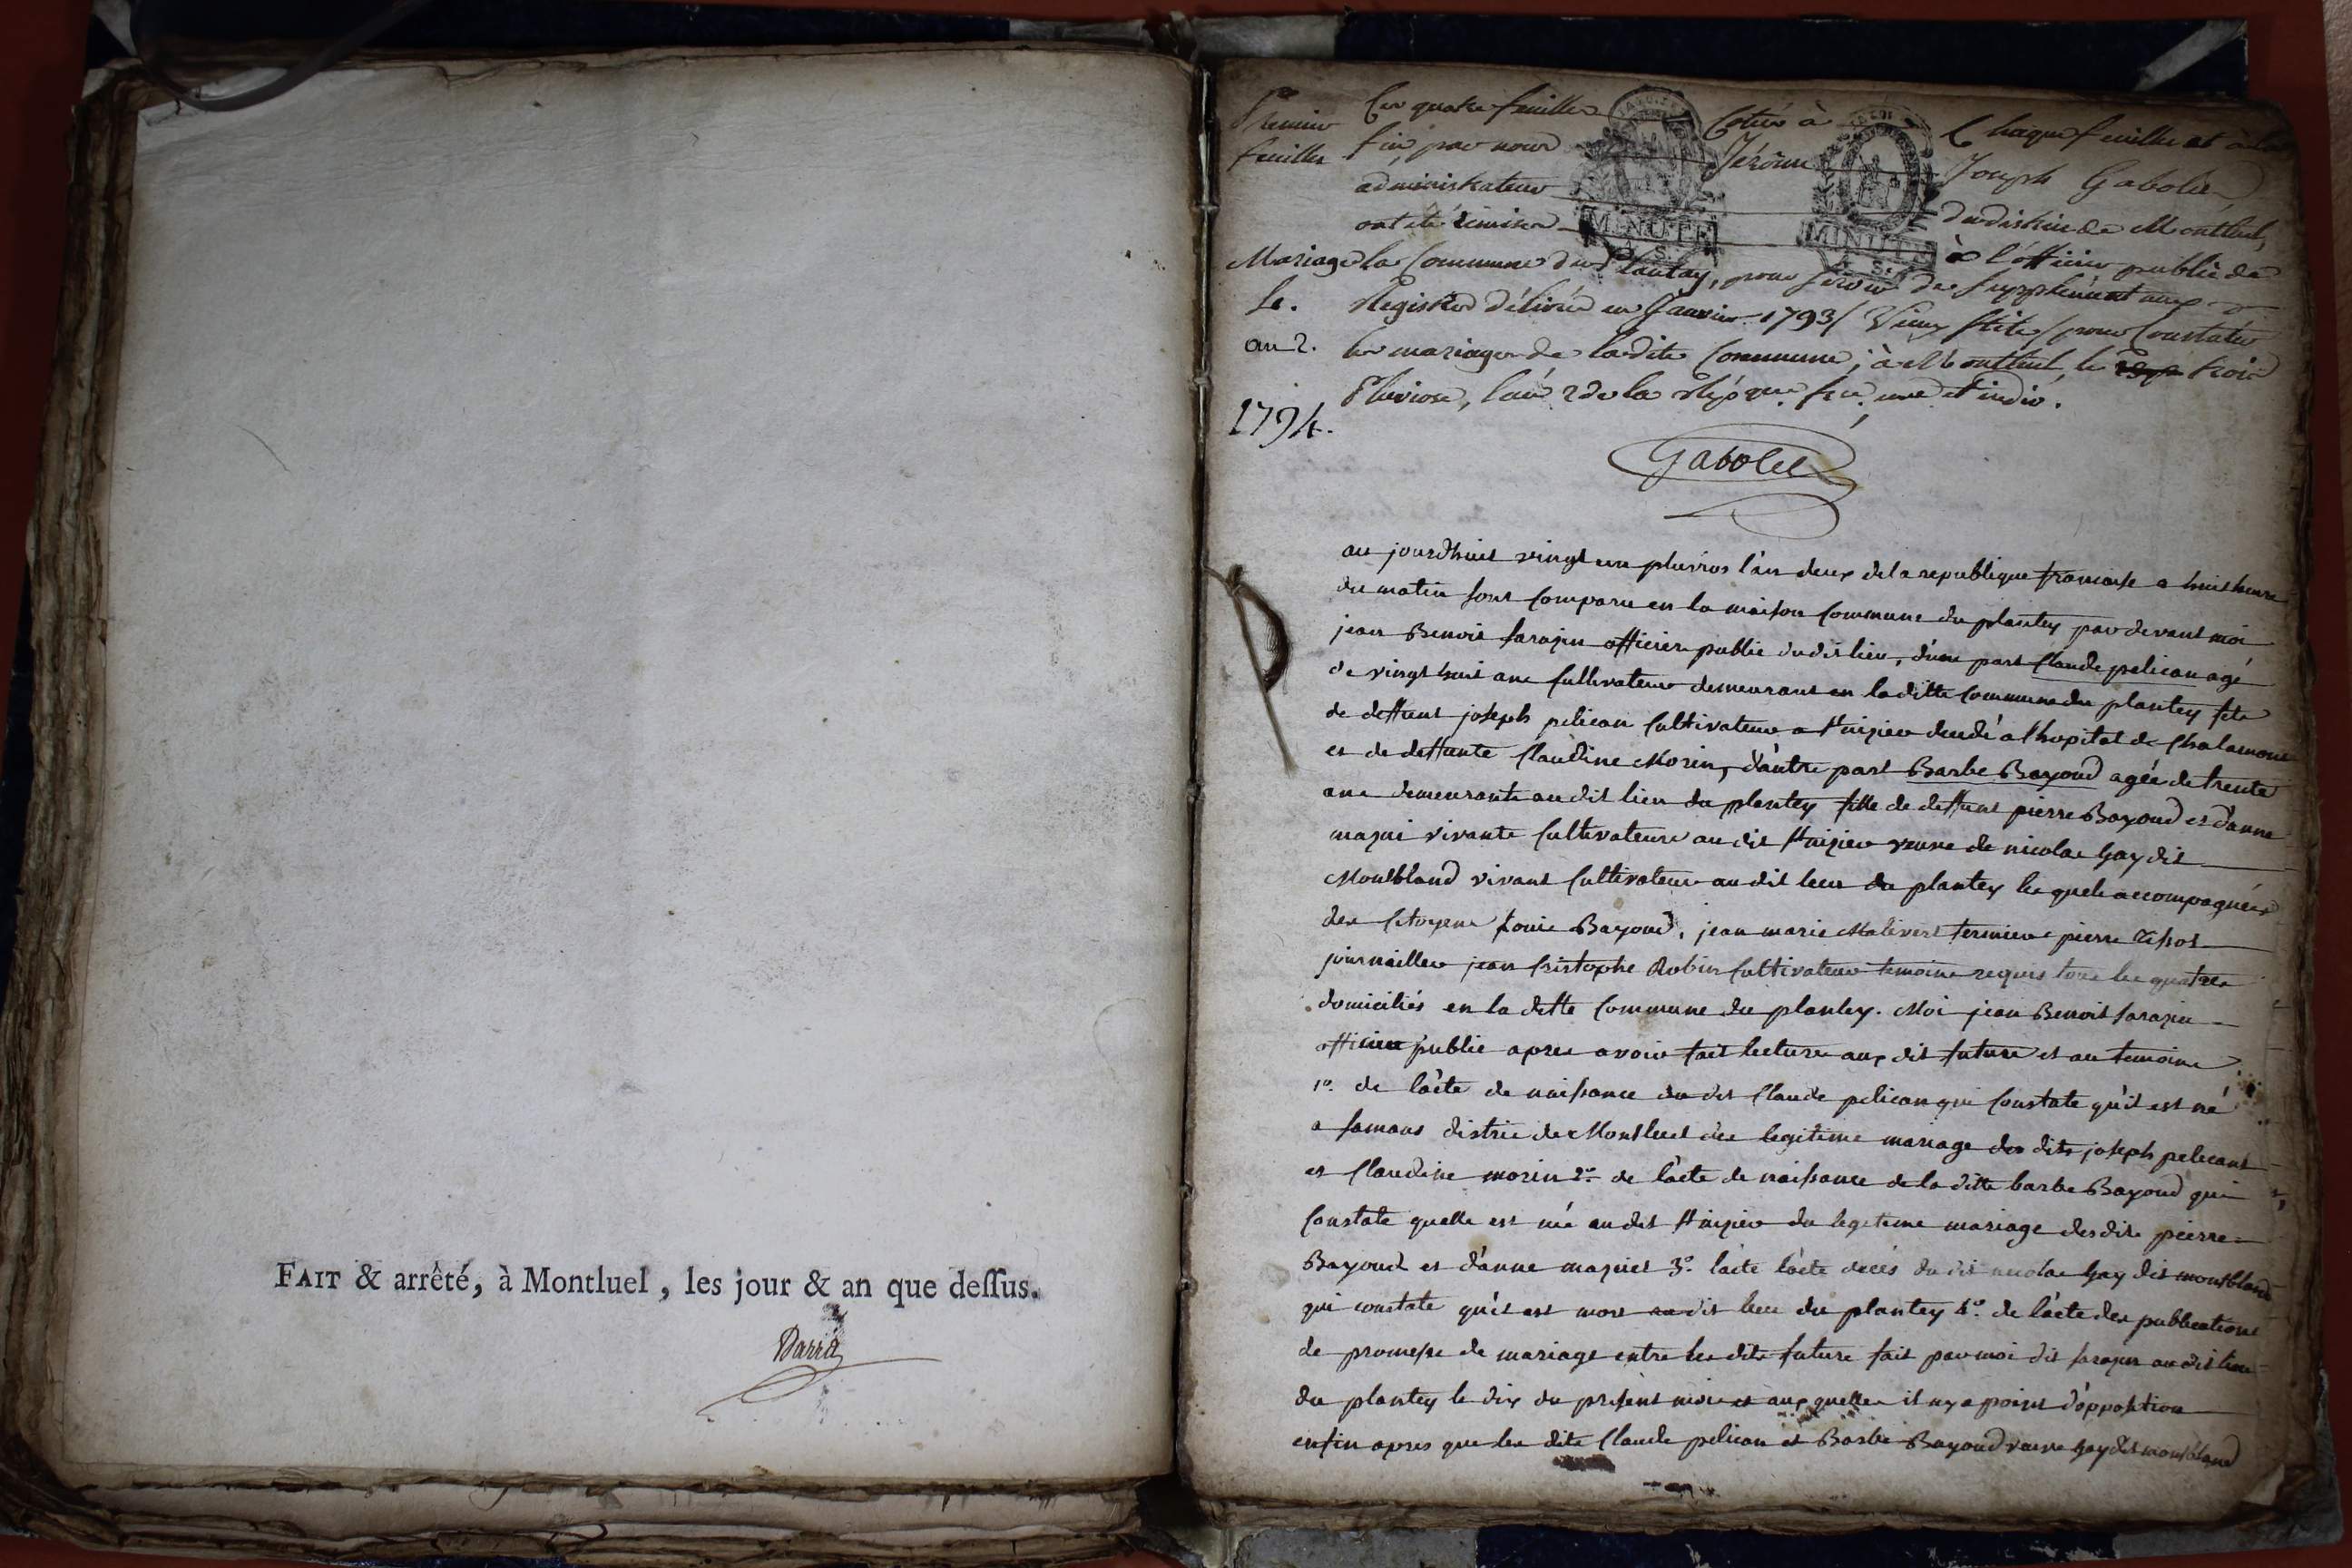 FAIT & arrêté, à Montluel, les jour & an que dessus.
Darra
Premier Ces quatre feuilles Cotées à Chaque feuille et à la
feuille fin par nous Jérôme Joseph Gabolet
administrateur du district de Montluel,
ont été remises à l'officier public de
MINUTE
MINUTE
Mariage la Commune du Plantay, pour servir de supplément aux
Registres délivrés en Janvier 1793 / Vieux stile / pour Constater
an 2. les mariages de ladite Commune; à Montluel, le trois
Pluviose, l'an 2 de la Rép que. fse. une et indiv.
1794.
Gabolet
au jourdhuit vingt un pluvios l'an deux de la republique francaise a huit heure
du matin sont comparu en la maison Commune du plantey par devant moi
jean Benoit sarazin officier public dudit lieu, d'une part Claude pelican agé
de vingt huit ans cultivateur demeurant en la ditte Commune du plantey fils
de deffunt joseph pelican Cultivateur a st nizier decedé a l'hopital de Chalamont
et de deffunte Claudine Morin, d'autre part Barbe Bayoud agée de trente
ans demeurante au dit lieu du plantey fille de deffunt pierre Bayoud et d'anne
vivante Cultivateure au dit st nizier veuve de nicolas Gay dit
Montbland vivant Cultivateur au dit lieu du plantey les quels accompagnés
des Citoyens Louis Bayoud, jean marie Malivert fermier pierre
journaillier jean Cristophe Robin Cultivateur temoins requis tous les quatres
domiciliés en la ditte Commune du plantey. Moi jean Benoit sarazin
officier public apres avoir fait lecture aux dit futurs et au temoins
1º. de l'acte de naissance du dit Claude pelican qui Constate qu'il est né
a samans district de Montluel du legitime mariage des dits joseph pelicant
et Claudine morin 2º. de l'acte de naissance de la ditte barbe Bayoud qui
Constate quelle est né audit st nizier du legitime mariage desdits pierre
Bayoud et d'anne 3º. l'acte l'acte décés du dit nicolas Gay dit montbland
qui constate qu'il est mort au dit lieu du plantey 4º. de l'acte des publications
de promesse de mariage entre les dits futurs fait par moi dit sarazin au dit lieu
du plantey le dix du présent mois et aux quelles il n'y a point d'opposition
enfin apres que les dits Claude pelican et Barbe Bayoud veuve Gay dit montbland